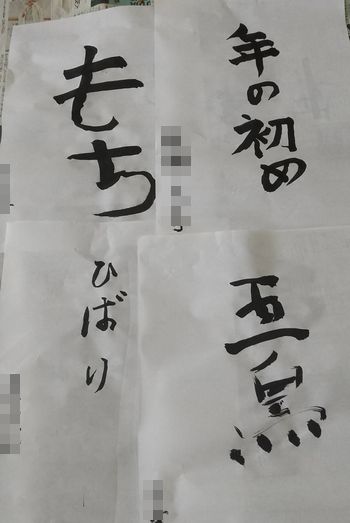 もち
年の初め
ひばり